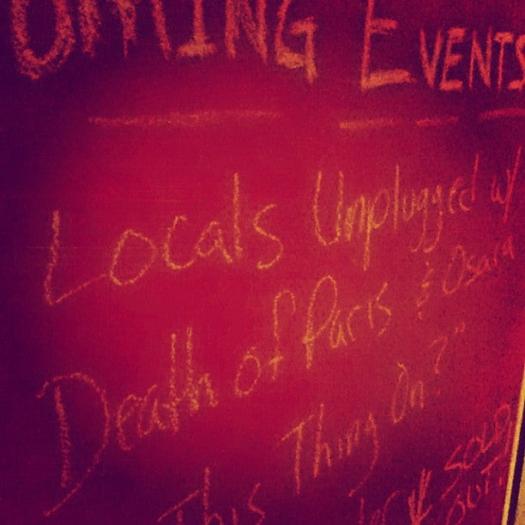 OMING EVENTS
Locals Unplugged w/
Death of Paris & Osara
This Thing On?"
SOLD
OUT!